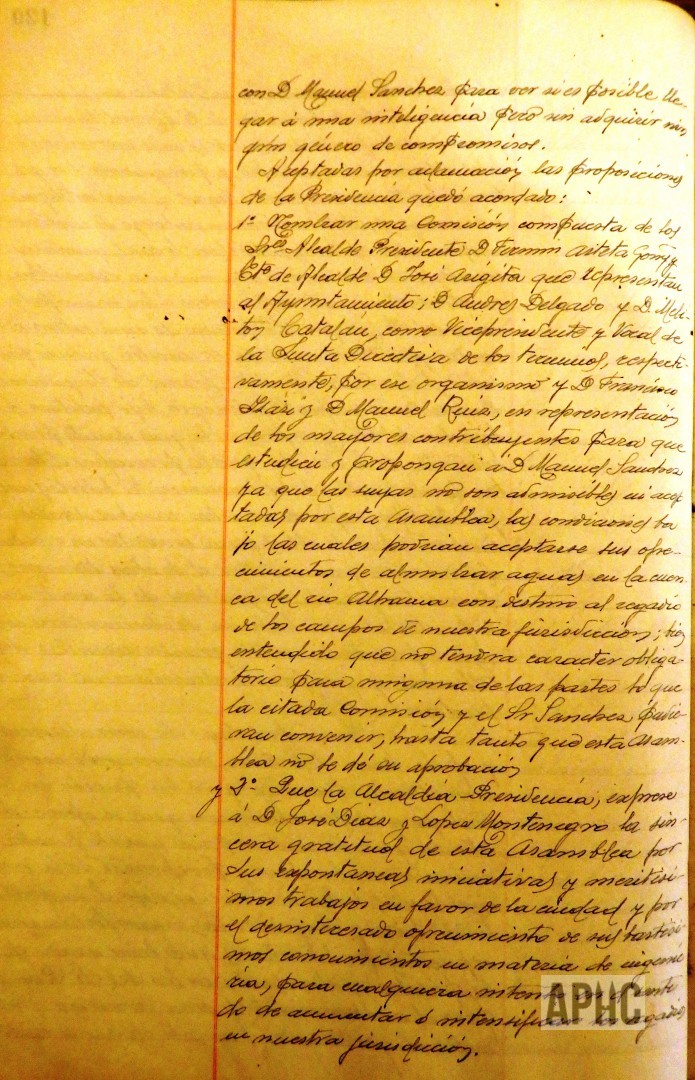 con D Manuel Sanchez para ver si es posible lle-
gar á una inteligencia pero sin adquirir nin-
gún género de compromisos.
Aceptadas por aclamación las proposiciones
de la Presidencia quedó acordado:
1º Nombrar una Comisión compuesta de los
Sres Alcalde Presidente D Fermin Arteta Goñi y
Tte de Alcalde D José Arigita que representan
al Ayuntamiento; D Andres Delgado y D Mele-
ton Catalán, como Vicepresidente y Vocal de
la Junta Directiva de los terminos, respecti-
vamente, por ese organismo y D Francisco
y D Manuel Ruiz, en representación
de los mayores contribuyentes para que
estudien y propongan á D Manuel Sanchez
ya que las suyas no son admisibles ni acep-
tadas por esta Asamblea, las condiciones ba-
jo las cuales podrian aceptarse sus ofre-
cimientos de alumbrar aguas en la cuen-
ca del rio Alhama con destino al regadio
de los campos de nuestra jurisdiccion; bien
entendido que no tendra caracter obliga-
torio para ninguna de las partes lo que
la citada Comisión y el Sr Sanchez pudie-
ran convenir, hasta tanto que esta Asam-
blea no le dé su aprobación
y 2º Que la Alcaldia-Presidencia, exprese
á D José Diaz y Lopez Montenegro la sin-
cera gratitud de esta Asamblea por
sus expontaneas iniciativas y meritisi-
mos trabajos en favor de la ciudad y por
el desinteresado ofrecimiento de sus
conocimientos en materia de ingenie-
ria, para cualquiera intento en el senti-
do de aumentar ó intensificar los regadios
en nuestra jurisdicción.
APHC